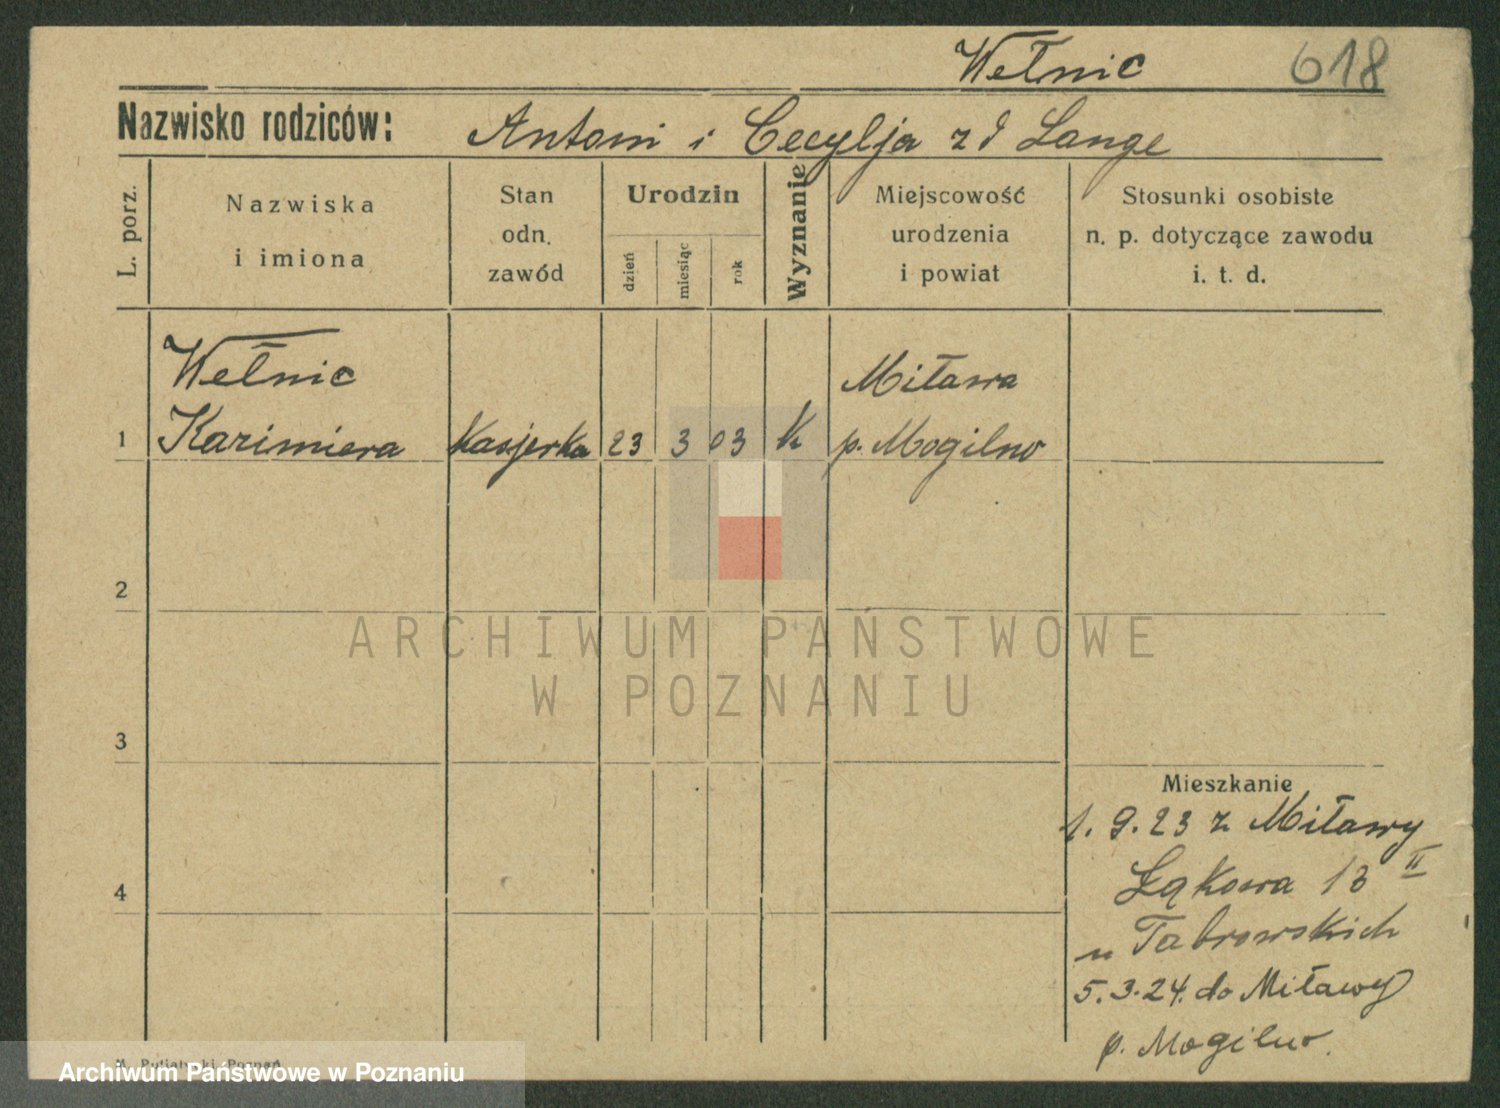 Wełnic 618
Nazwisko rodziców: Antoni i Cecylja z d Lange
L. porz.
Nazwiska
i imiona
Stan
odn.
zawód
Urodzin
dzień
miesiąc
rok
Wyznanie
Miejscowość
urodzenia
i powiat
Stosunki osobiste
n. p. dotyczące zawodu
i. t. d.
Wełnic Miława
1 Kazimiera Kasjerka 23 3 03 K p. Mogilno
2
ARCHIWUM PAŃSTWOWE
W POZNANIU
3
Mieszkanie
1. 9. 23 z Miławy
Łąkowa 13 II
4
u Tabrowskich
5. 3. 24. do Miławy
p. Mogilno.
Poznań
Archiwum Państwowe w Poznaniu